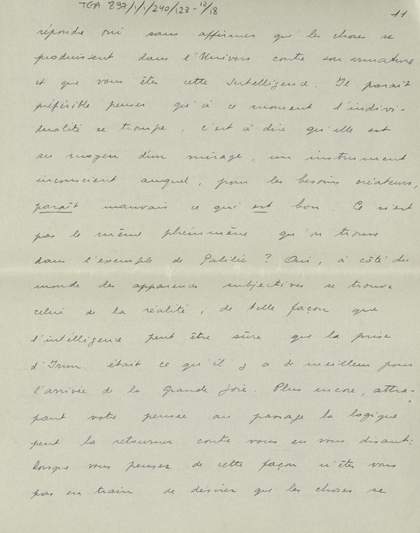 TGA 897/1/1/240/123-12/18
11
répondre oui sans affirmer que les choses se
produisent dans l'Univers contre son armature
et que vous êtes cette Intelligence. Il paraît
préférible penser qu'à ce moment l'indivi-
dualité se trompe, c'est à dire qu'elle est
au moyen d'un mirage, un instrument
inconscient auquel, pour les besoins créateurs,
paraît mauvais ce qui est bon. Ce n'est
pas le même phénomène que n. trouve
dans l'exemple de Galilée? Oui, à côté du
monde des apparences subjectives se trouve
celui de la réalité, de telle façon que
l'intelligence peut être sûre que la prise
d'Irun était ce qu'il y a de meilleur pour
l'arrivée de la Grande Joie. Plus encore, attra-
pant votre pensée au passage la logique
peut la retourner contre vous en vous disant:
lorsque vous pensez de cette façon n'êtes vous
pas en train de désirer que les choses se